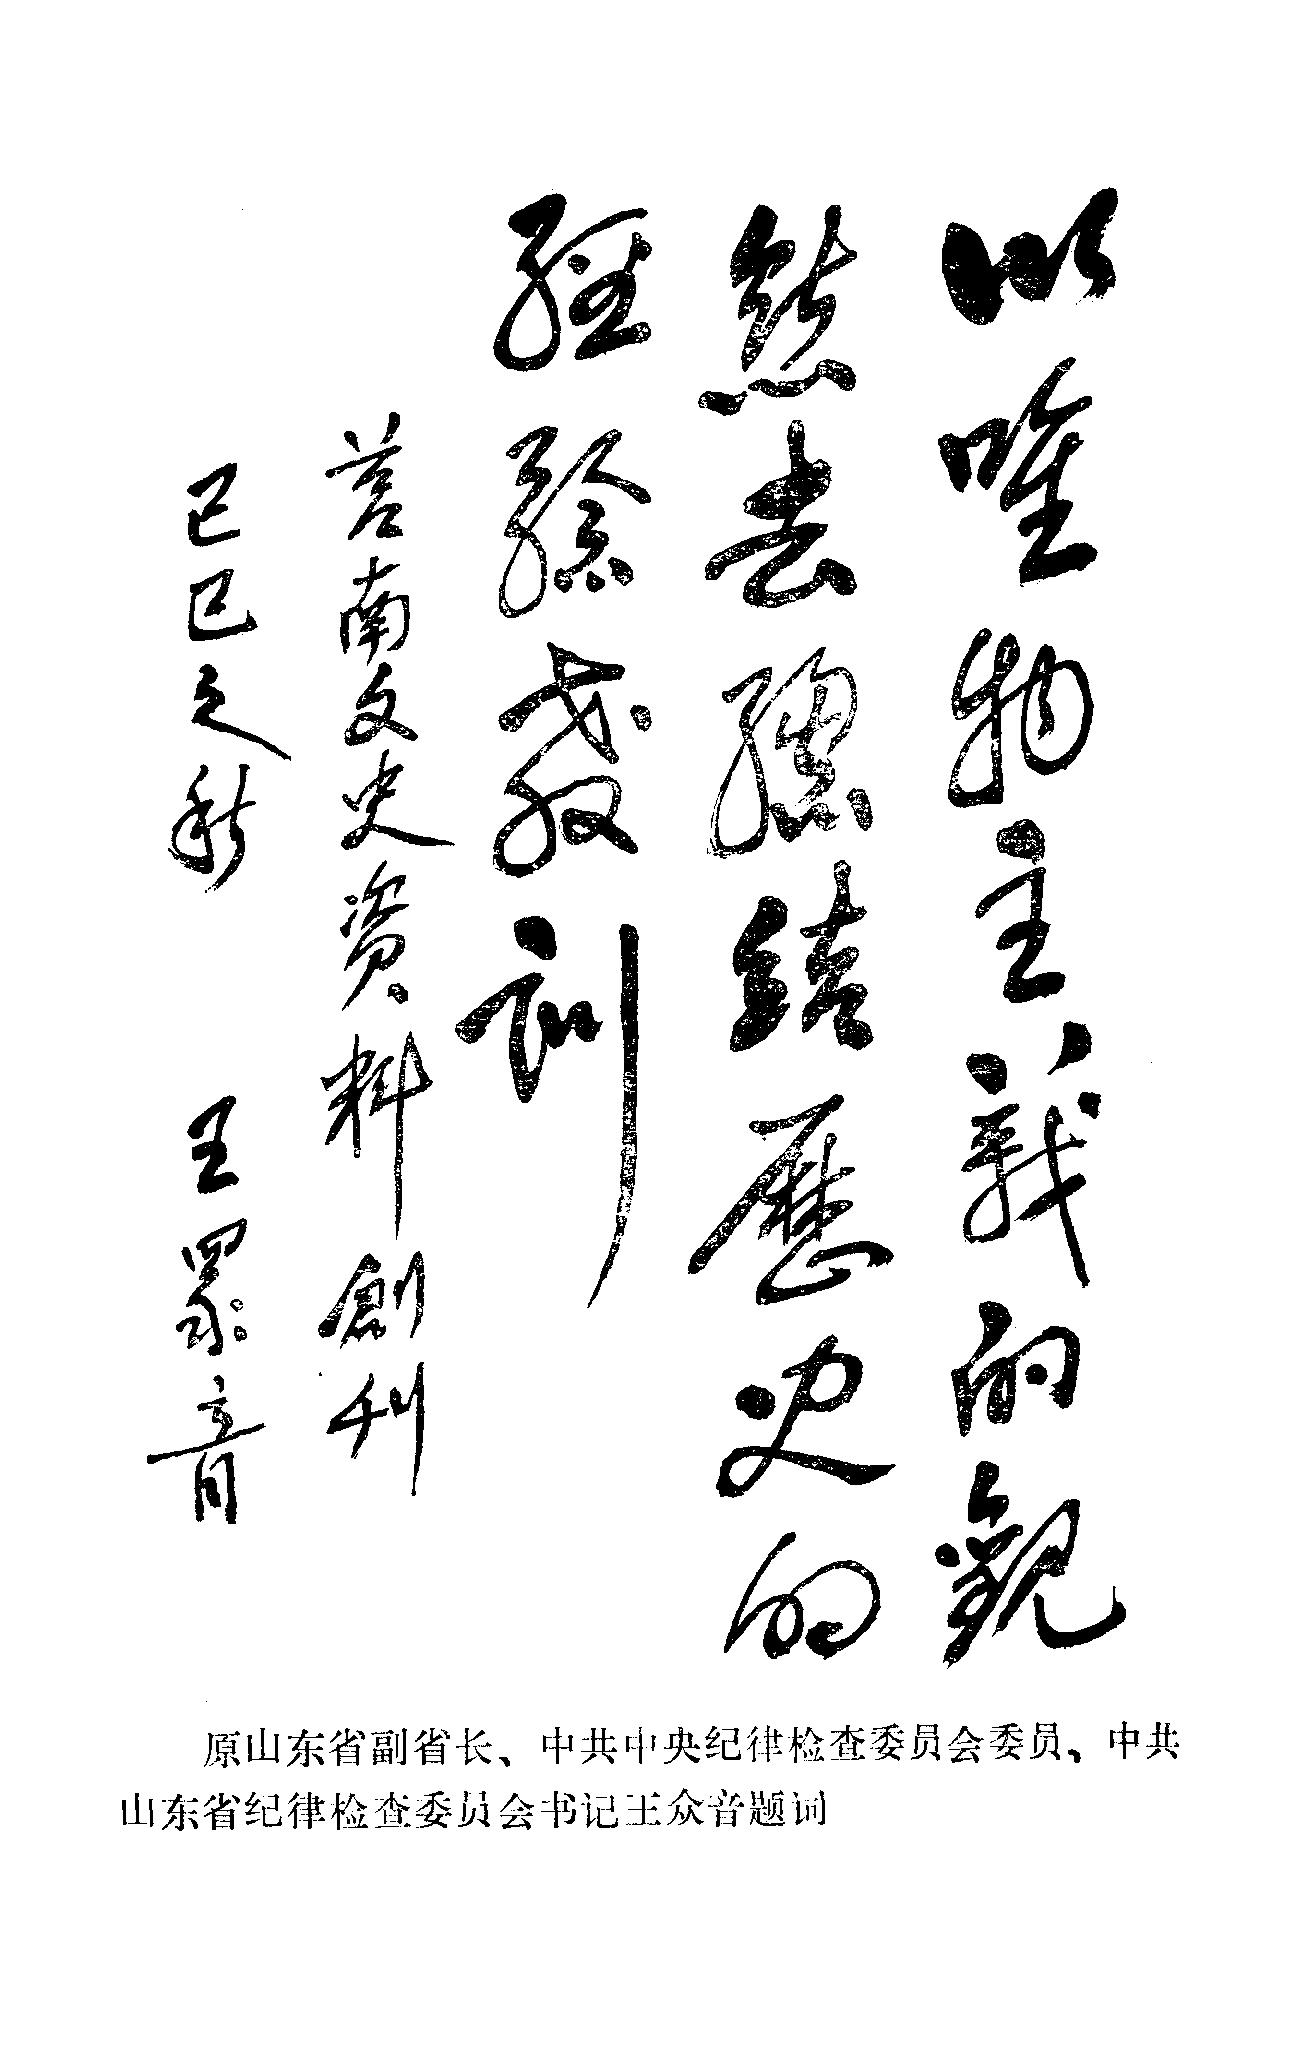 以唯物主義的觀
點去總結歷史的
經驗教训
莒南文史资料創刊
己巳之秋 王眾音
原山东省副省长、中共中央纪律检查委员会委员、中共
山东省纪律检查委员会书记王众音题词